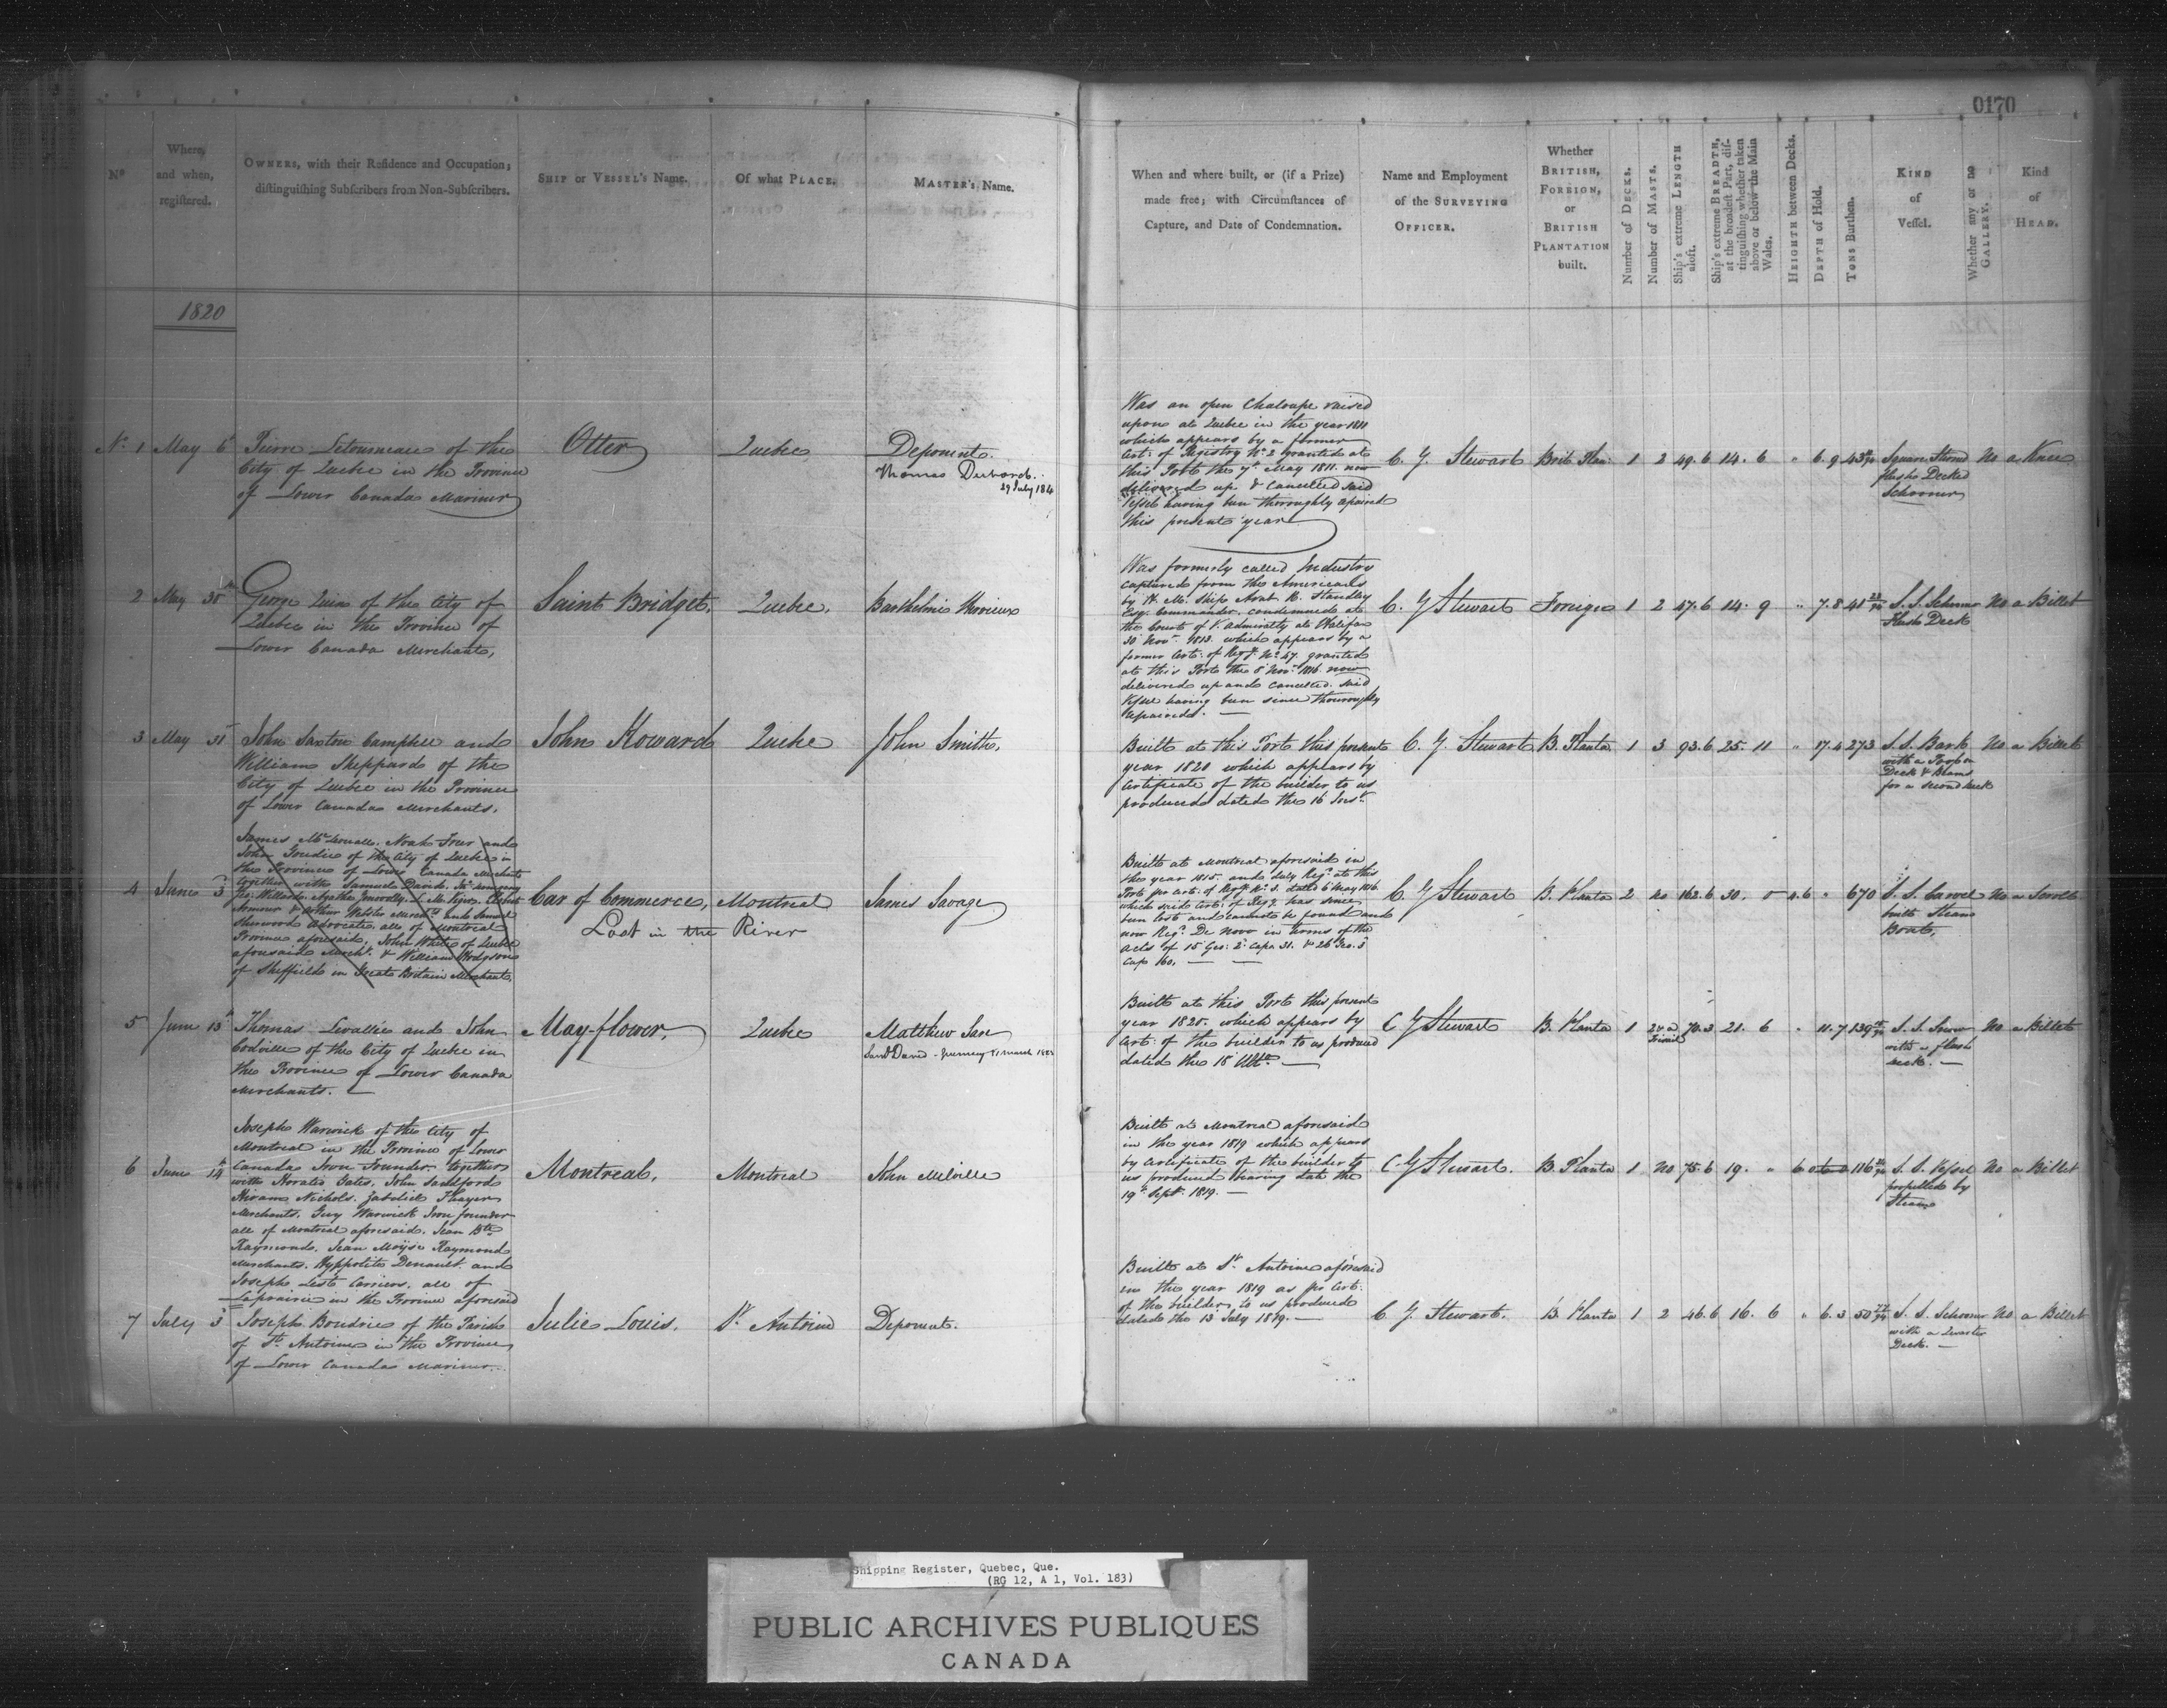 0170
No
Where, and when, registered.
OWNERS, with their Residence and Occupation; distinguishing Subscribers from Non-Subscribers.
SHIP or VESSEL's Name.
Of what PLACE.
MASTER's Name.
When and where built, or (if a Prize) made free; with Circumstances of Capture, and Date of Condemnation.
Name and Employment of the SURVEYING OFFICER.
Whether BRITISH, FOREIGN, or BRITISH PLANTATION built.
Number of DECKS.
Number of MASTS.
Ship's extreme LENGTH aloft.
Ship's extreme BREADTH, at the broadest Part, distinguishing whether taken above or below the Main Wales.
HEIGHTH between Decks.
DEPTH of Hold.
TONS Burthen.
KIND of Vessel.
Whether any or no GALLERY.
Kind of HEAD.
1820
No 1 May 6
Pierre Letourneau of the
City of Quebec in the Province
of Lower Canada Mariner
Otter
Quebec
Deponent.
Thomas
29 July 184
Was an open Chaloupe raised
upon at Quebec in the year 1811
which appears by a former
Cert: of Registry No 2 granted at
this Port the 7th May 1811. now
delivered up & cancelled said
Vessel having been thoroughly repaired
this present year
C. G. Stewart
Brit. Plan: 1 2 49.6 14. 6 " 6.9 43
Square Sterned
flush Decked
Schooner
No a Knee
2 May 30th
George Quin of the City of
Quebec in the Province of
Lower Canada Merchant,
Saint Bridget.
Quebec.
Barthelmie
Was formerly called Industry
captured from the Americans
by H. M. Ship H. Standley
Esqr Commander. condemned at
the Court of V. admiralty at Halifax
30 Novr 1813. which appears by a
former Cert: of Regy No 47. granted
at this Port the 8 Novr 1816 now
delivered up and cancelled. said
Vessel having been since thouroughly
repaired. —
C. G Stewart
Foreign 1 2 47.6 14. 9 " 7.8 41 22/94
S. S. Schooner
Flush Deck
No a Billet
3 May 31
John Saxton Campbell and
William Sheppard of the
City of Quebec in the Province
of Lower Canada Merchants.
John Howard
Quebec
John Smith.
Built at this Port this present
year 1820 which appears by
Certificate of the builder to us
produced dated the 16 Inst.
C. G. Stewart
B. Planta 1 3 93.6 25. 11 " 17.4 273
S. S. Bark
with a
Deck & Beams
for a second deck
No a Billet
4 June 3
James McDouall. Noah Freer and
John Goudie of the City of Quebec in
the Province of Lower Canada Merchants
together with Samuel David.
Armour & Arthur Webster Merchts and Samuel
Sherwood Advocate. all of Montreal
Province aforesaid. John White of Quebec
aforesaid Mercht. & William Hodgson
of Sheffield in Great Britain Merchants
Car of Commerce,
Lost in the River
Montreal
James Savage
Built at Montreal aforesaid in
the year 1815. and duly Regd at this
Port per Cert: of Regy No 3. dated 6 May 1816.
which said Cert: of Regy has since
been lost and cannot be found and
now Regd. De Novo in terms of the
acts of 15 Geo: 2d Capn 31. & 26 Geo. 3
Cap 60. — —
C. G Stewart
B. Planta 2 no 162.6 30. 0 4.6 " 670
S. S. Carvel
built Steam
Boat,
No a Scroll
5 June 13
Thomas Levallie and John
Codville of the City of Quebec in
the Province of Lower Canada
Merchants. —
May-flower.
Quebec
Matthew
March 1823
Built at this Port this present
year 1820. which appears by
Cert: of the builder to us produced
dated the 18 Ulto. —
C G Stewart
B. Planta 1 2 & a
Trisail
70.3 21. 6 " 11.7 139
S. S. Snow
with a flush
deck. —
No a Billet
6 June 14
Joseph Warwick of the City of
Montreal in the Province of Lower
Canada Iron Founder. together
with Horatio Gates. John Saddford
Hiram Nichols. Zabdiel Thayer
Merchants. Guy Warwick Iron founder
all of Montreal aforesaid. Jean Bte
Raymond. Jean Moyse Raymond
Merchants. Hyppolite Denault. and
Joseph Lest Carriers. all of
Laprairie in the Province aforesaid
Montreal.
Montreal
John Melville
Built at Montreal aforesaid
in the year 1819 which appears
by Certificate of the builder to
us produced bearing date the
19th Septr. 1819. —
C. G Stewart.
B. Planta 1 no 75.6 19. " 6 116
S. S. Vessel
propelled by
Steam
No a Billet
7 July 3
Joseph Boudrie of the Parish
of St. Antoine in the Province
of Lower Canada Mariner.
Julie Louis.
St. Antoine
Deponent.
Built at St. Antoine aforesaid
in the year 1819 as per Cert:
of the builder to us produced
dated the 13 July 1819. —
C. G. Stewart.
B. Planta 1 2 46.6 16. 6 " 6.3 50 22/94
S. S. Schooner
with a Quarter
Deck. —
No a Billet
Shipping Register, Quebec, Que.
(RG 12, A 1, Vol. 183)
PUBLIC ARCHIVES PUBLIQUES
CANADA